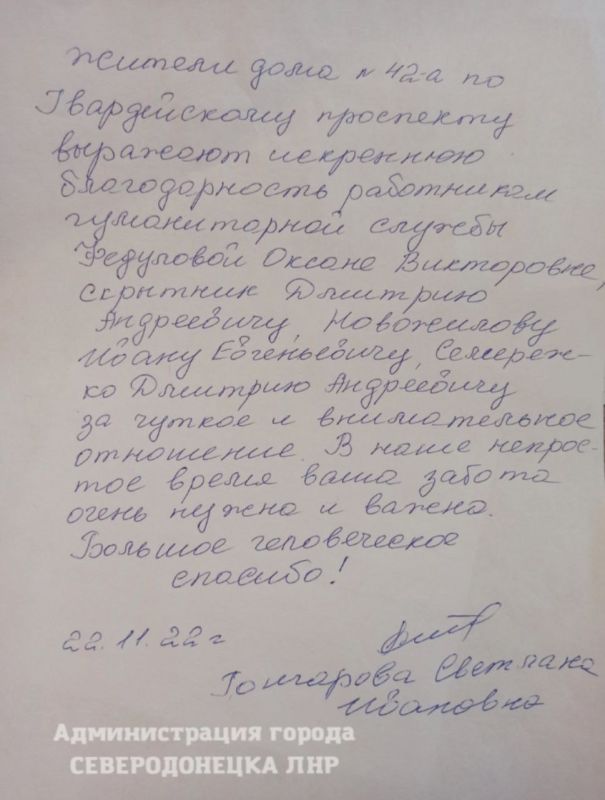 Жители дома № 42-а по
Гвардейскому проспекту
выражают искреннюю
благодарность работникам
гуманитарной службы
Федуловой Оксане Викторовне,
Скрытник Дмитрию
Андреевичу, Новожилову
Ивану Евгеньевичу, Семереж-
ко Дмитрию Андреевичу
за чуткое и внимательное
отношение. В наше непрос-
тое время ваша забота
очень нужна и важна.
Большое человеческое
спасибо!
22.11.22 г
Гончарова Светлана
Ивановна
Администрация города
СЕВЕРОДОНЕЦКА ЛНР